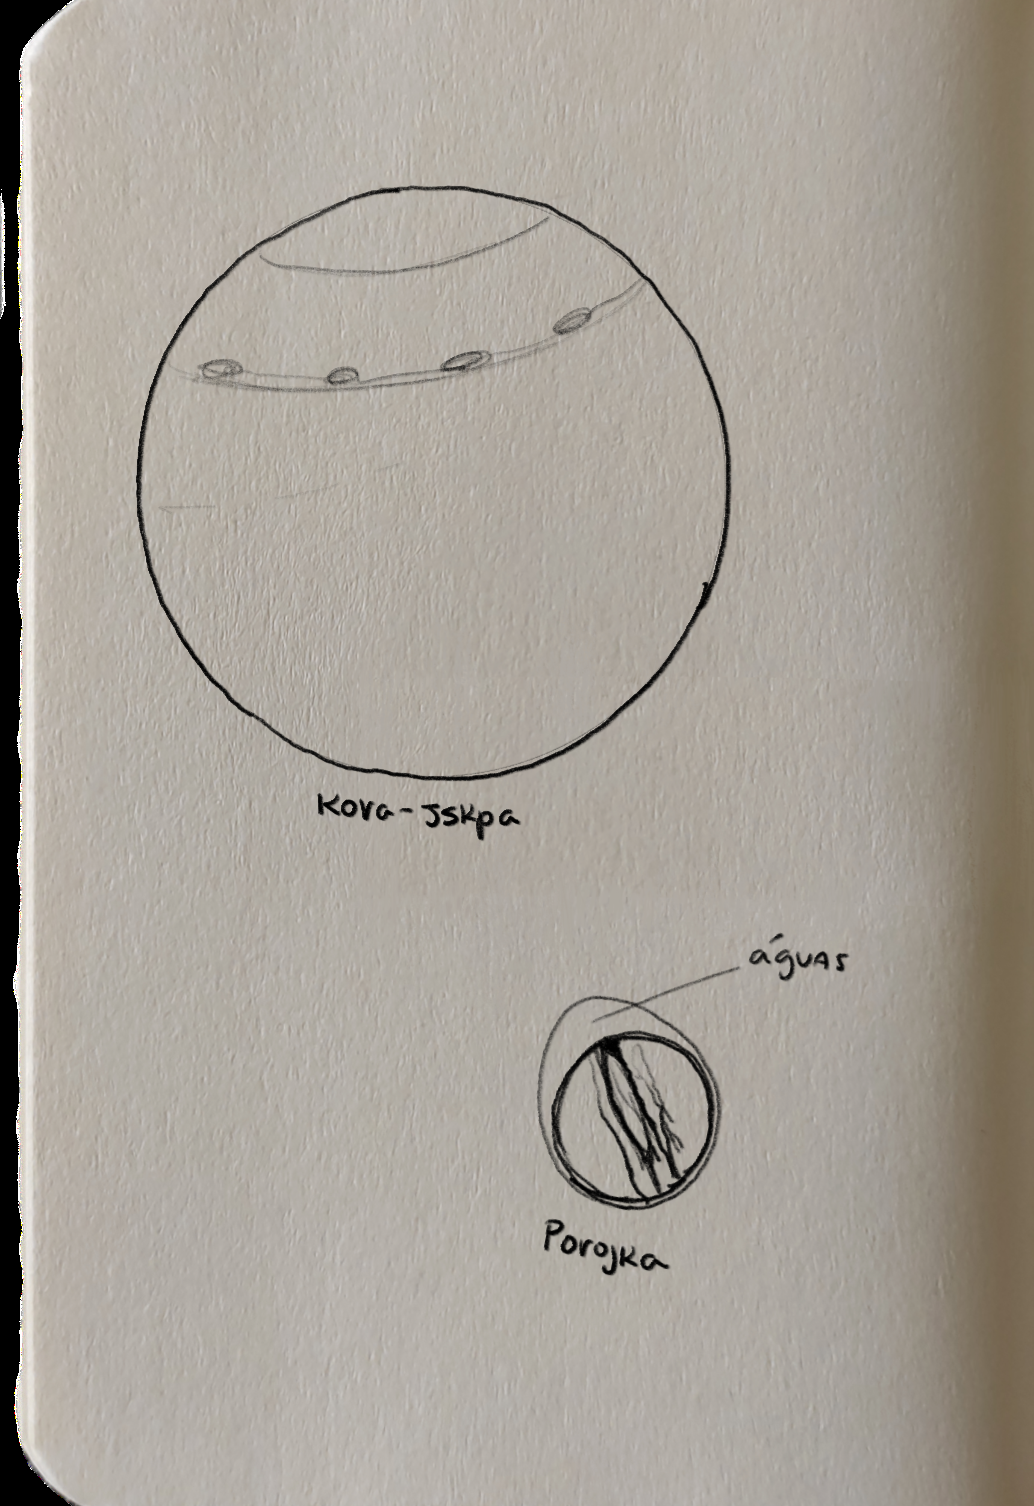 Kova-Jskpa
águas
Porojka